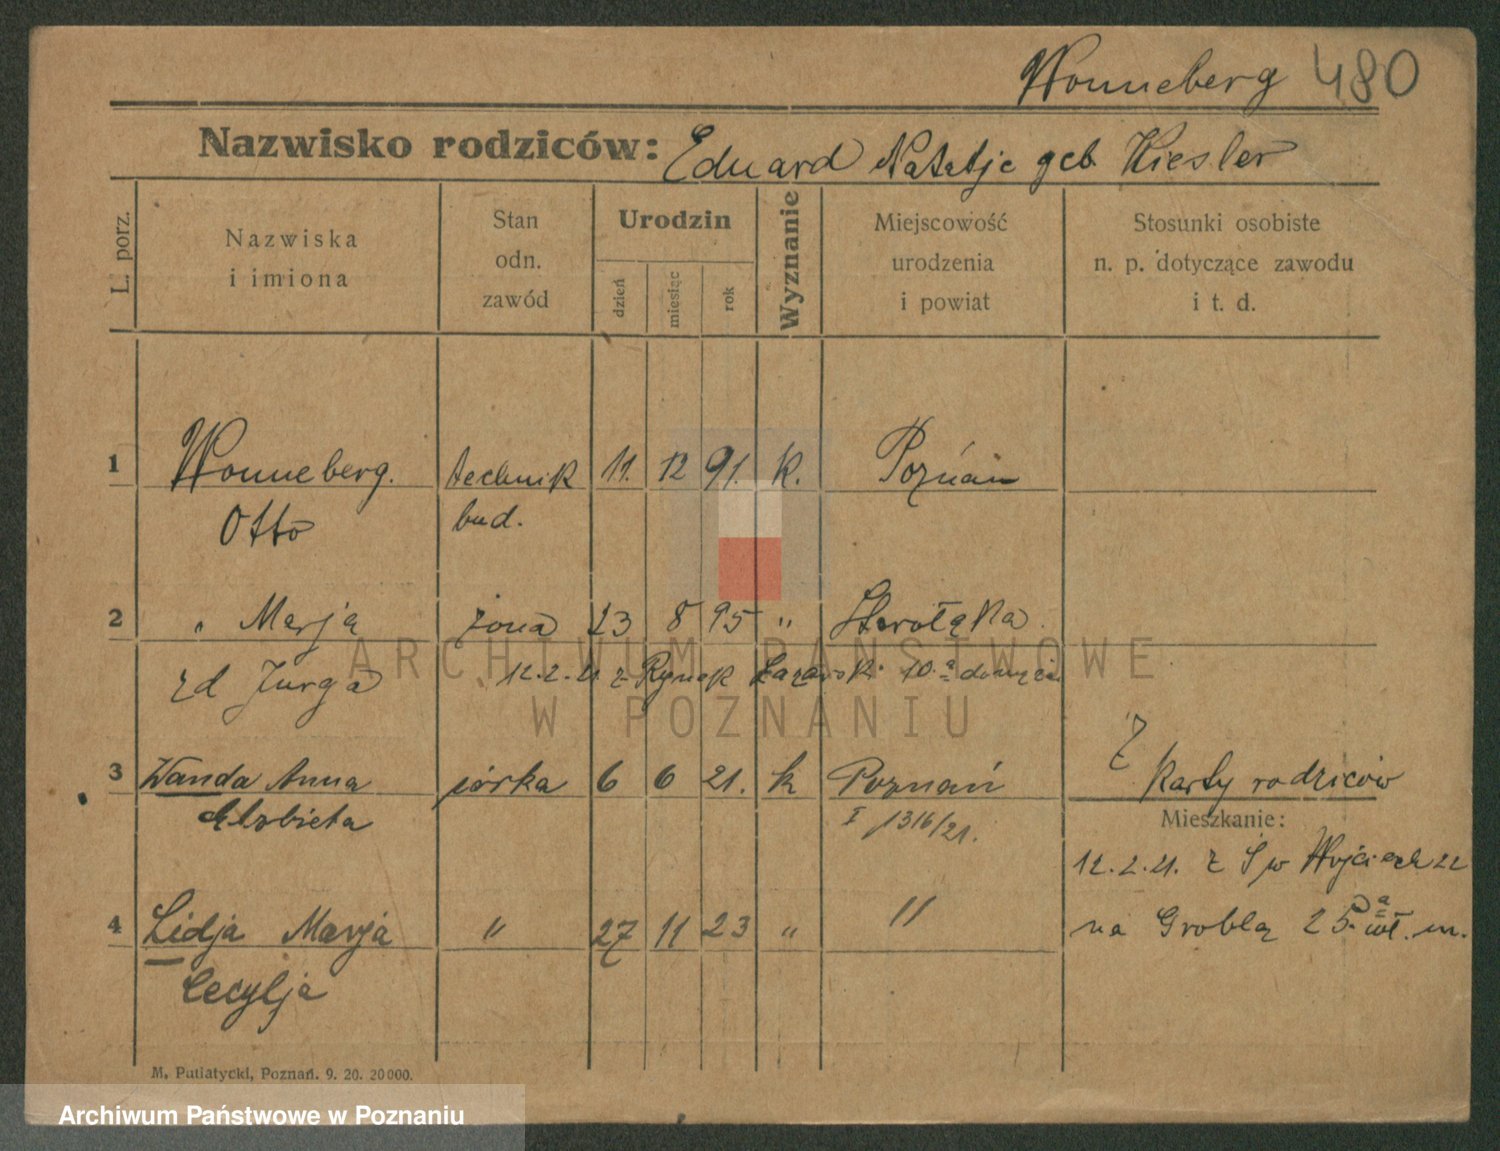 Wonneberg 480
Nazwisko rodziców: Eduard Natalje geb Kiesler
L. porz.
Nazwiska
i imiona
Stan
odn.
zawód
Urodzin
dzień
miesiąc
rok
Wyznanie
Miejscowość
urodzenia
i powiat
Stosunki osobiste
n. p. dotyczące zawodu
i t. d.
1 Wonneberg. technik 11. 12 91. k. Poznań
Otto bud.
2 " Marja żona 23 8 95 " Starołęka
zd Jurga 12.2.21 z Rynek Łazarski 10.
3 Wanda Anna córka 6 6 21. k Poznań
Elżbieta I 1316/21.
Z
karty rodziców
Mieszkanie:
12.2.21. z Św Wojciech 22
na Groblą 25. a wł. m.
4 Lidja Marja " 27 11 23 " "
Cecylja
M. Putiatycki, Poznań. 9. 20. 20000.
ARCHIWUM PAŃSTWOWE
W POZNANIU
Archiwum Państwowe w Poznaniu